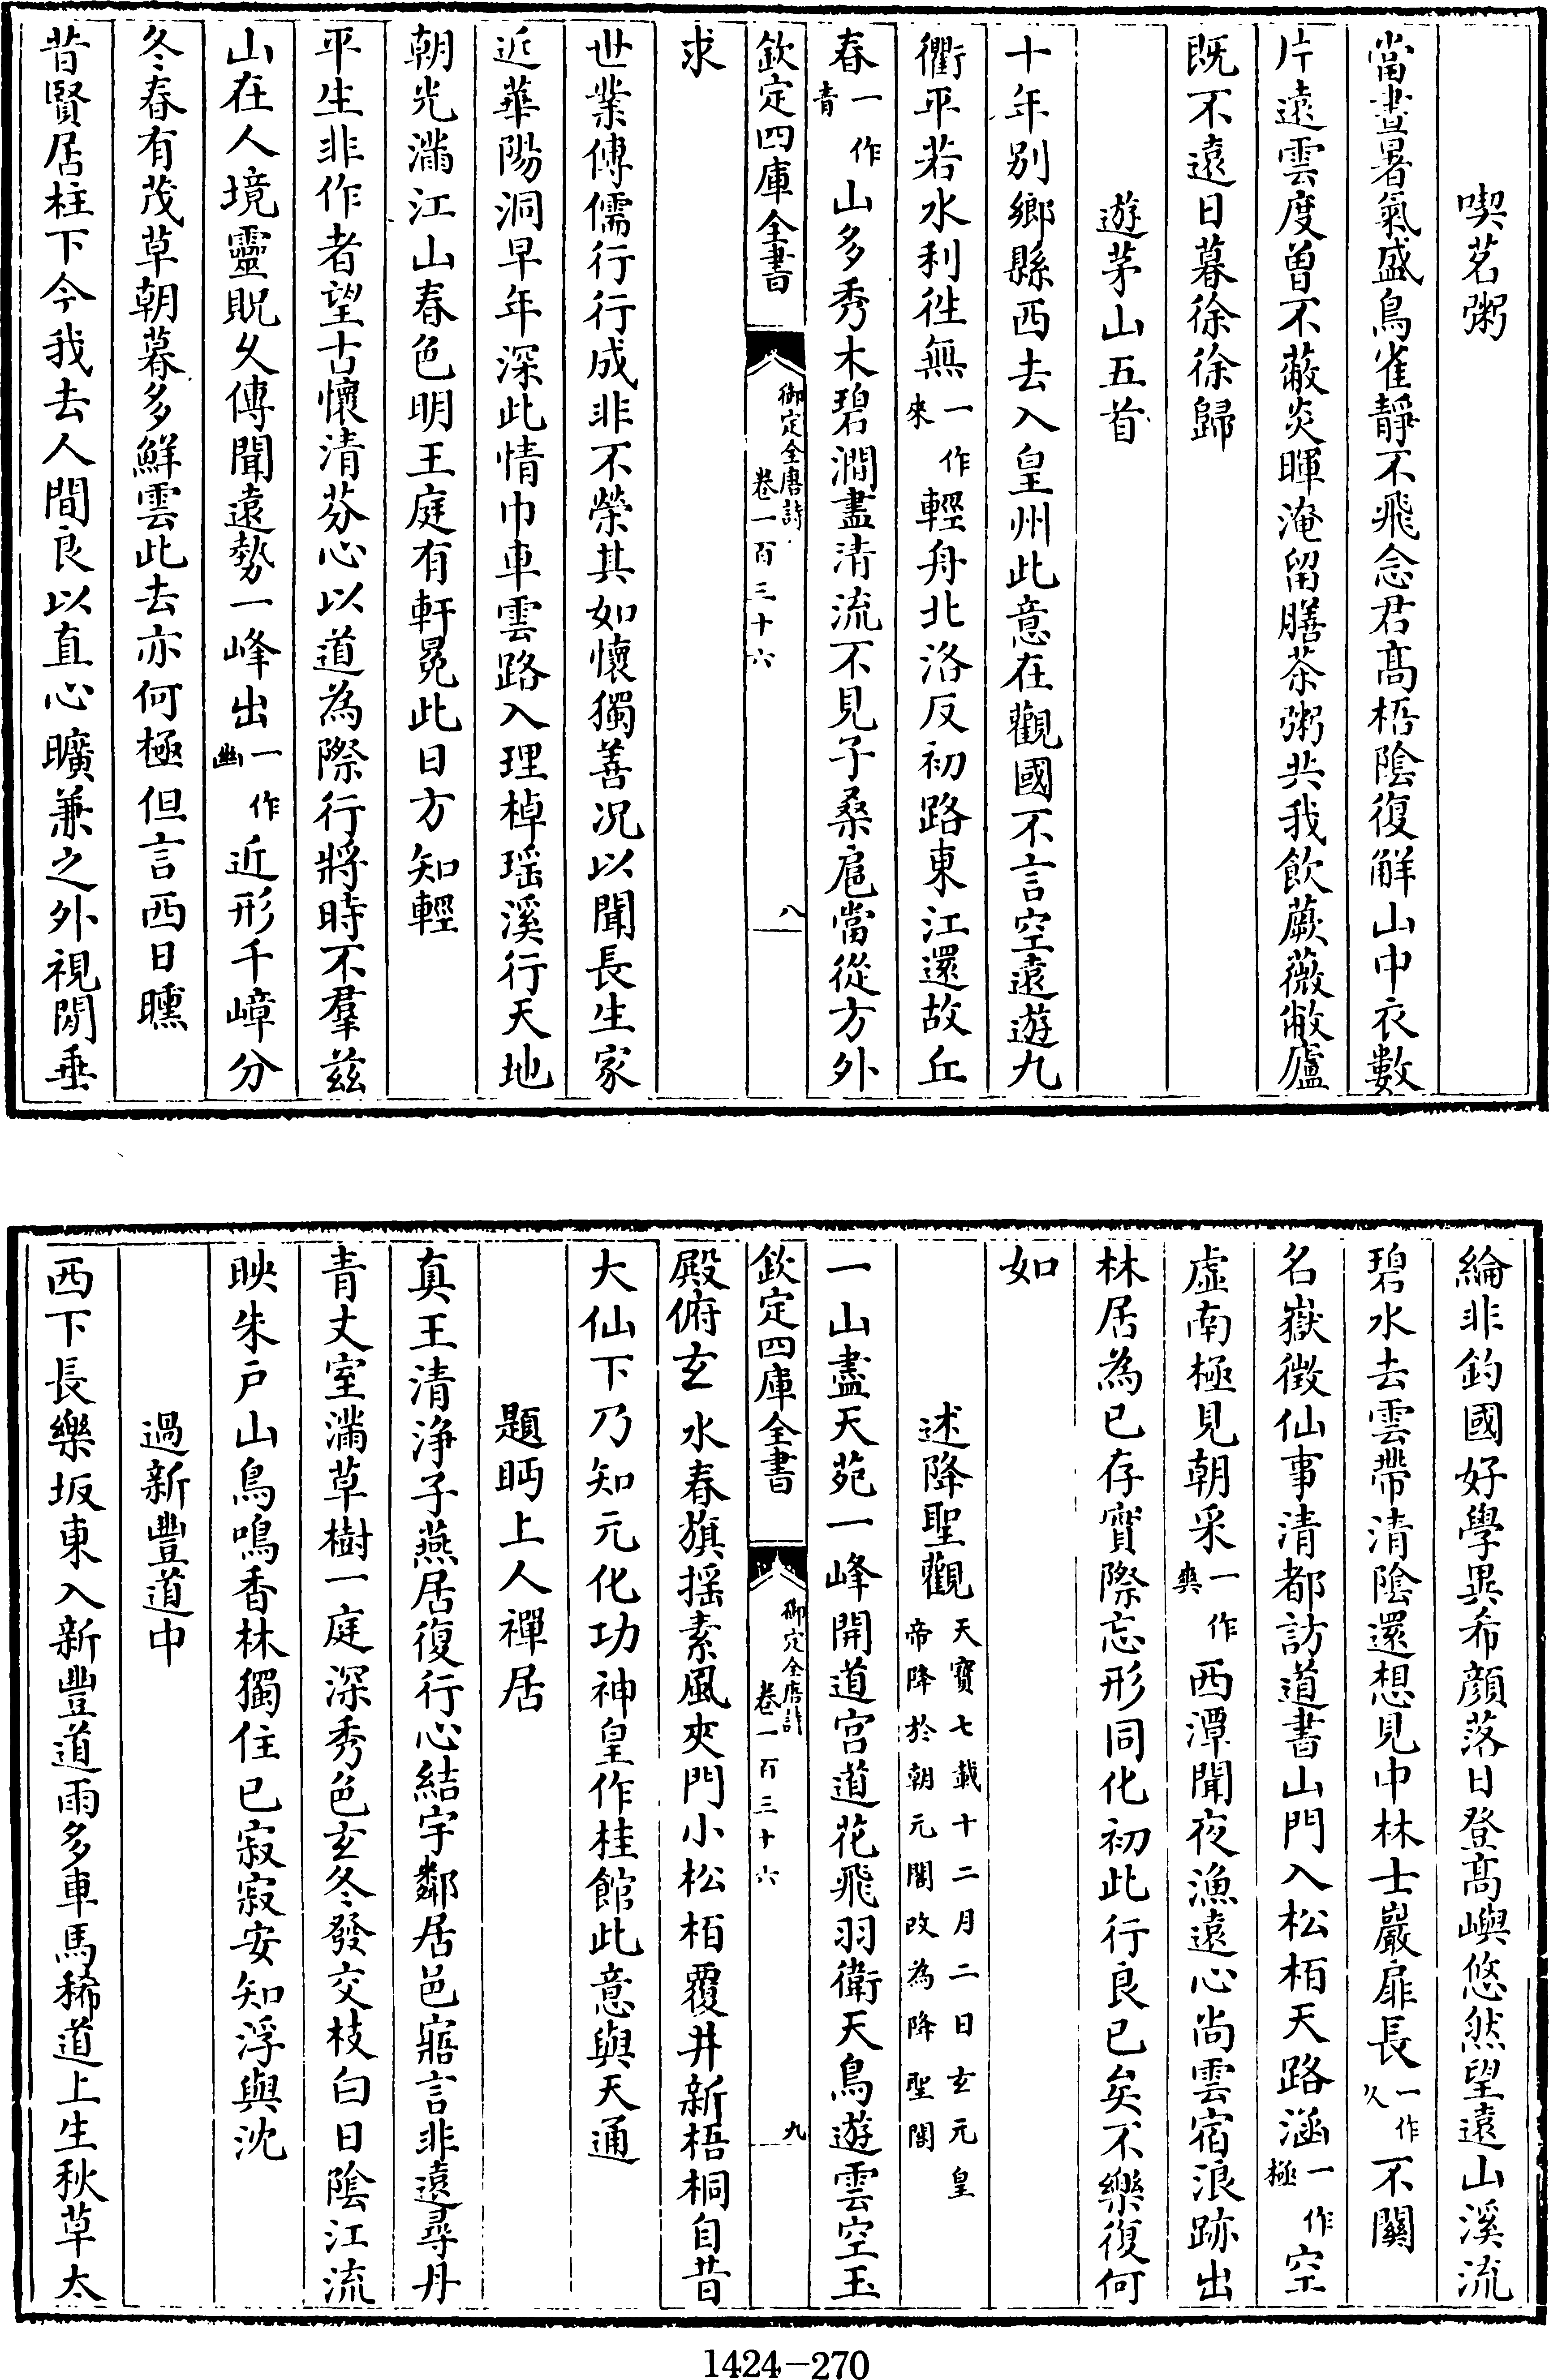 喫茗粥
當晝暑氣盛鳥雀靜不飛念君髙梧陰復解山中衣數
片遠雲度曾不蔽炎暉淹留膳茶粥共我飲蕨薇敝廬
既不遠日暮徐徐歸
遊茅山五首
十年别鄉縣西去入皇州此意在觀國不言空遠遊九
衢平若水利徃無一作來輕舟北洛反初路東江還故丘
春一作青山多秀木碧澗盡清流不見子桑扈當從方外
欽定四庫全書
御定全唐詩
卷一百三十六
八
求
世業傳儒行行成非不榮其如懷獨善况以聞長生家
近華陽洞早年深此情巾車雲路入理棹瑶溪行天地
朝光滿江山春色明王庭有軒冕此日方知輕
平生非作者望古懷清芬心以道為際行將時不羣兹
山在人境靈貺久傳聞遠勢一峰出一作幽近形千嶂分
冬春有茂草朝暮多鮮雲此去亦何極但言西日曛
昔賢居柱下今我去人間良以直心曠兼之外視閒垂
綸非釣國好學異希顔落日登髙嶼悠然望遠山溪流
碧水去雲帶清陰還想見中林士巖扉長一作久不闗
名嶽徴仙事清都訪道書山門入松栢天路涵一作極空
虚南極見朝采一作爽西潭聞夜漁遠心尚雲宿浪跡出
林居為已存寳際忘形同化初此行良已矣不樂復何
如
述降聖觀天寳七載十二月二日玄元皇帝降於朝元閣改為降聖閣
一山盡天苑一峰開道宫道花飛羽衛天鳥遊雲空玉
欽定四庫全書
御定全唐詩
卷一百三十六
九
殿俯玄水春旗摇素風夾門小松栢覆井新梧桐自昔
大仙下乃知元化功神皇作桂館此意與天通
題眄上人禪居
真王清浄子燕居復行心結宇鄰居邑寤言非遠尋丹
青丈室滿草樹一庭深秀色玄冬發交枝白日陰江流
映朱戸山鳥鳴香林獨住已寂寂安知浮與沈
過新豐道中
西下長樂坂東入新豐道雨多車馬稀道上生秋草太
1424—270